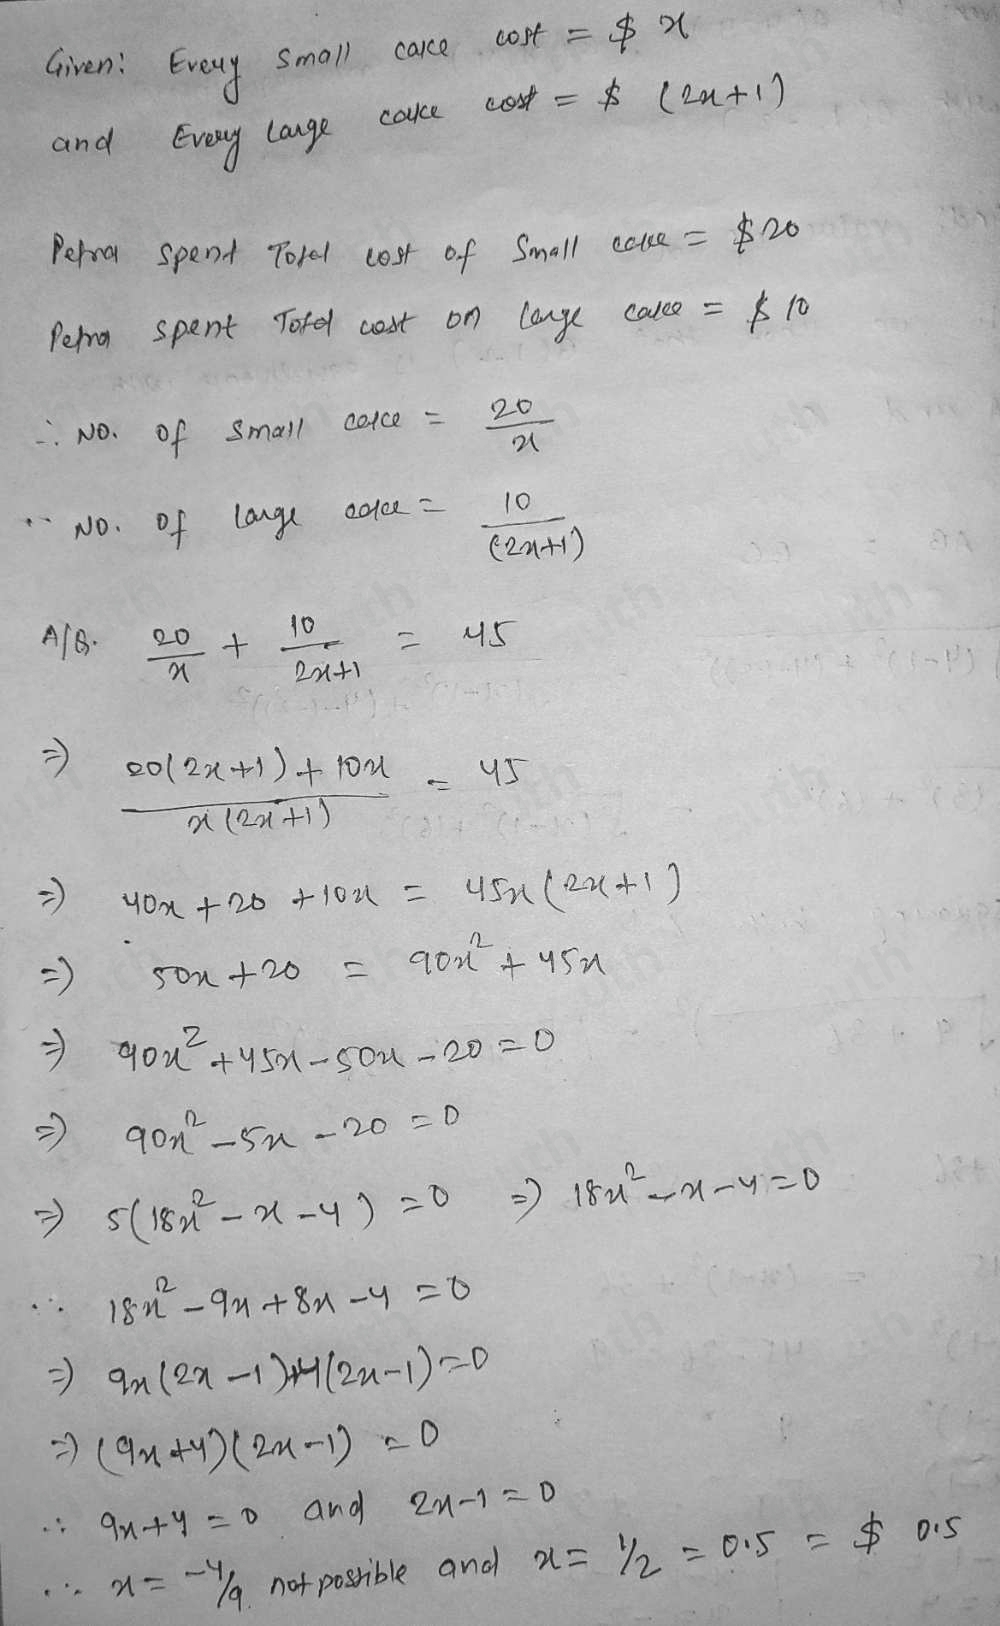 Given: Every small cake cost = $ x
and Every large cake cost = $ (2x+1)
Petra spent Total cost of Small cake = $20
Petra spent Total cost on large cake = $ 10
∴ NO. of small cake = 20/x
∵ NO. of large cake = 10/(2x+1)
A/Q. 20/x + 10/2x+1 = 45
⇒ 20(2x+1)+10x/x(2x+1) = 45
⇒ 40x+20+10x = 45x(2x+1)
⇒ 50x+20 = 90x²+45x
⇒ 90x²+45x-50x-20=0
⇒ 90x²-5x-20=0
⇒ 5(18x²-x-4)=0 ⇒ 18x²-x-4=0
∴ 18x²-9x+8x-4=0
⇒ 9x(2x-1)+4(2x-1)=0
⇒ (9x+4)(2x-1)=0
∴ 9x+4=0 and 2x-1=0
∴ x=-4/9 not possible and x=1/2=0.5=$ 0.5